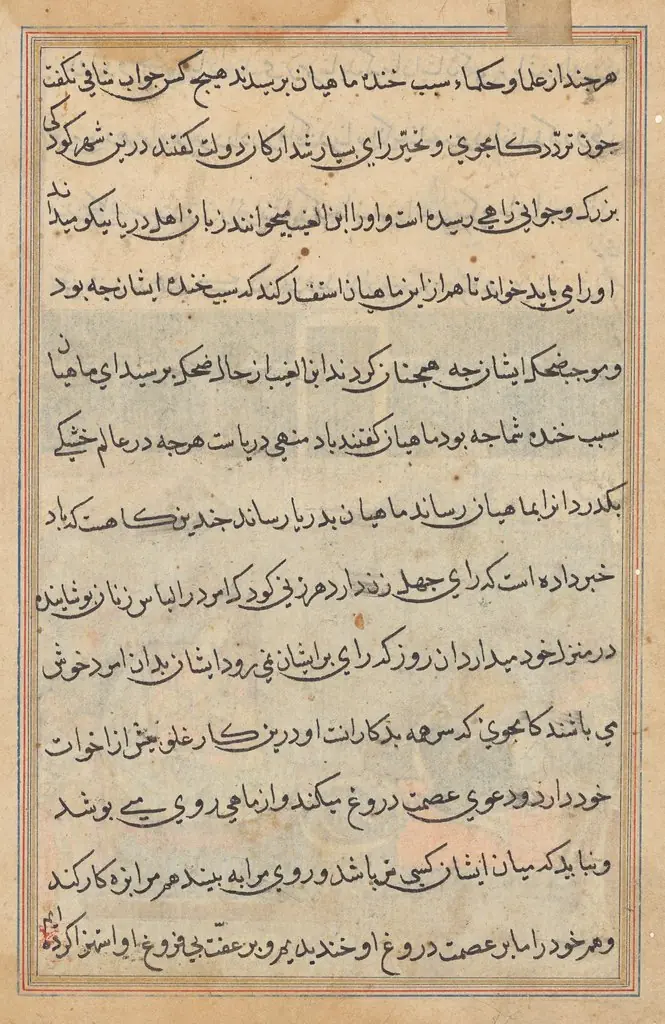 هرجند از علما و حکماء سبب خنده ماهیان برسیدند هیج کس جواب شافی نکفت
جون تردّد کامجوی و تحیّر رای بسیار شد ارکان دولت کفتند درین شهر کودکی
بزرک و جوانی راهی رسیده است و اورا ابن الغیب میخوانند زبان اهل دریا نیکو میداند
اورا می باید خواند تا هم از این ماهیان استفسار کند که سبب خنده ایشان جه بود
و موجب ضحک ایشان جه همجنان کردند ابن الغیب از حال ضحک برسید ای ماهیان
سبب خنده شما جه بود ماهیان کفتند باد منهی دریاست هرجه در عالم خشکی
بکذرد انرا بماهیان رساند ماهیان بدریا رساند جندین کاهست که باد
خبر داده است که رای جهل زن دارد هر زنی کودک امرد را لباس زنان بوشانیده
در منزل خود میدارد ان روز که رای بر ایشان نمی رود ایشان بدان امرد خوش
می باشند کامجوی که سر همه بدکارانت او درین کار غلو بیش از اخوات
خود دارد و دعوی عصمت دروغ میکند و از ماهی روی می بوشد
و نباید که میان ایشان کسی نر باشد و روی مرا به بیند هم مرا بزه کار کند
و هم خود را ما بر عصمت دروغ او خندیدیم و بر عفّت بی فروغ او استهزا کرده ایم